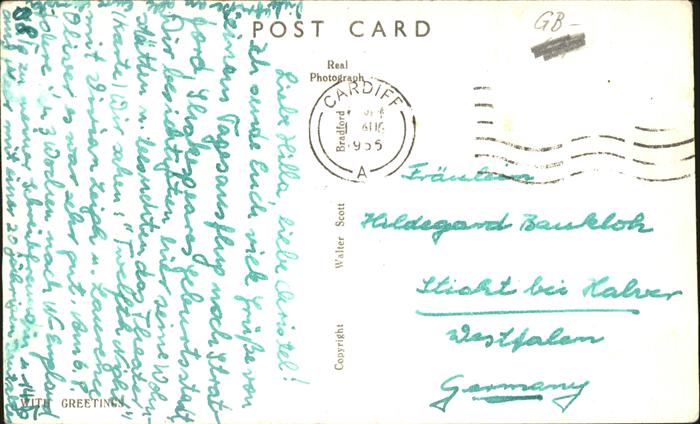 POST CARD
GB-
Real
Photograph
CARDIFF
AUG
1955
A
Bradford
Walter Scott
Copyright
WITH GREETINGS
Fräulein
Hildegard Baukloh
Sticht bei Halver
Westfalen
Germany
Liebe Hilla, liebe Christel!
Ich sende Euch viele Grüße von
einem Tagesausflug nach Strat-
ford, Shakespeares Geburtsstadt.
Wir besichtigten hier seine Wohn-
stätten u. besuchten das Theater
Wir sahen: "Twelfth Night"
mit Vivian Leigh u. Laurence
Olivier. Es war sehr gut.
3 Wochen nach N-England
zu meiner Brieffreundin